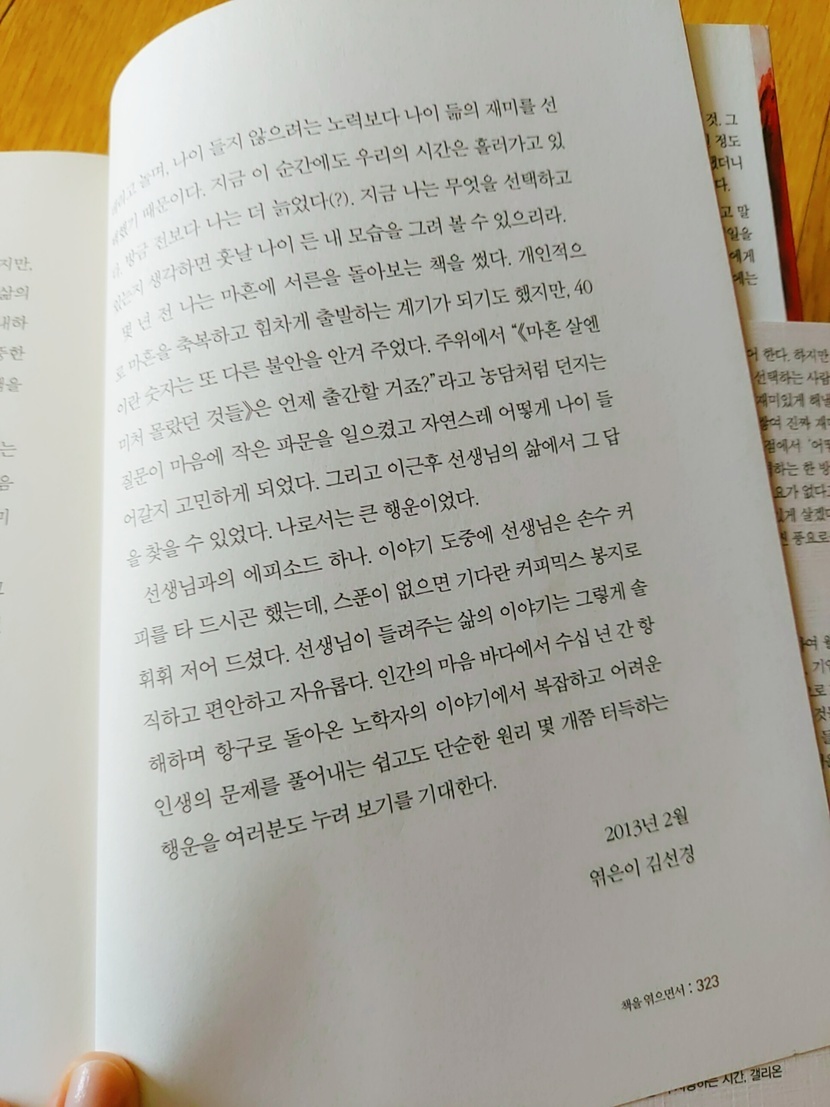 놀며, 나이 들지 않으려는 노력보다 나이 듦의 재미를 선
때문이다. 지금 이 순간에도 우리의 시간은 흘러가고 있
방금 전보다 나는 더 늙었다(?). 지금 나는 무엇을 선택하고
있는지 생각하면 훗날 나이 든 내 모습을 그려 볼 수 있으리라.
몇 년 전 나는 마흔에 서른을 돌아보는 책을 썼다. 개인적으
로 마흔을 축복하고 힘차게 출발하는 계기가 되기도 했지만, 40
이란 숫자는 또 다른 불안을 안겨 주었다. 주위에서 “《마흔 살엔
미처 몰랐던 것들》은 언제 출간할 거죠?”라고 농담처럼 던지는
질문이 마음에 작은 파문을 일으켰고 자연스레 어떻게 나이 들
어갈지 고민하게 되었다. 그리고 이근후 선생님의 삶에서 그 답
을 찾을 수 있었다. 나로서는 큰 행운이었다.
선생님과의 에피소드 하나. 이야기 도중에 선생님은 손수 커
피를 타 드시곤 했는데, 스푼이 없으면 기다란 커피믹스 봉지로
휘휘 저어 드셨다. 선생님이 들려주는 삶의 이야기는 그렇게 솔
직하고 편안하고 자유롭다. 인간의 마음 바다에서 수십 년 간 항
해하며 항구로 돌아온 노학자의 이야기에서 복잡하고 어려운
인생의 문제를 풀어내는 쉽고도 단순한 원리 몇 개쯤 터득하는
행운을 여러분도 누려 보기를 기대한다.
2013년 2월
엮은이 김선경
책을 엮으면서 : 323
지만,
삶의
것. 그
정도
다.
고 말
에게
에는
한다. 하지만
선택하는 사람
재미있게 해낼
진짜 재
점에서
하는 한 방
요가 없다고
있게 살겠다
풍요로
시간. 갤리온